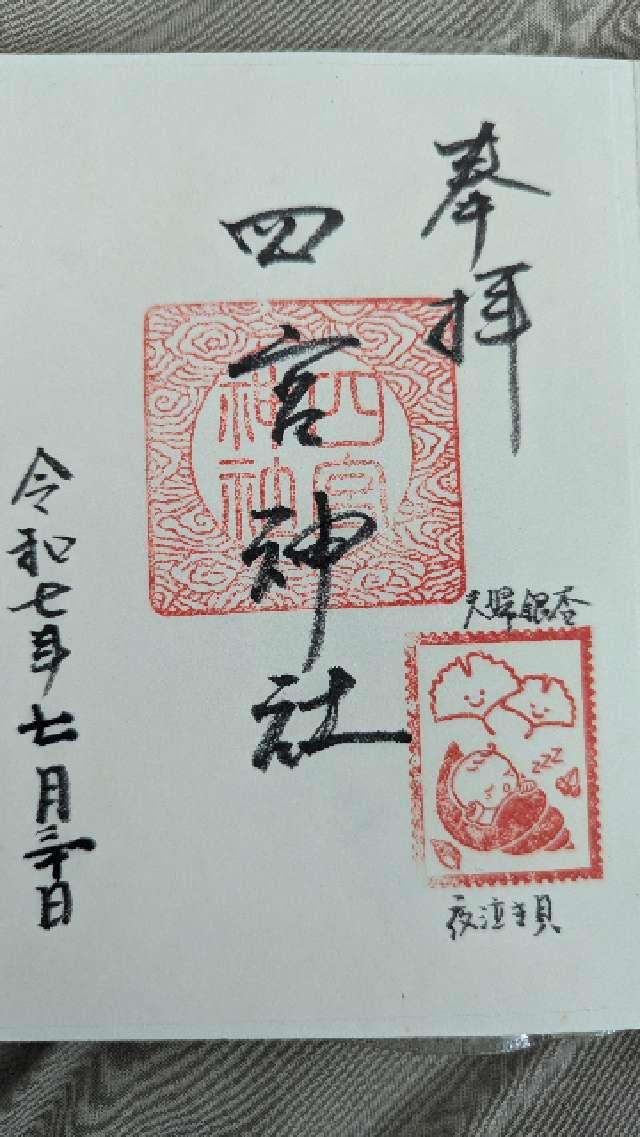 奉拝
四宮神社
四宮
神社
夫婦銀杏
zzz
夜泣き貝
令和七年七月三十日